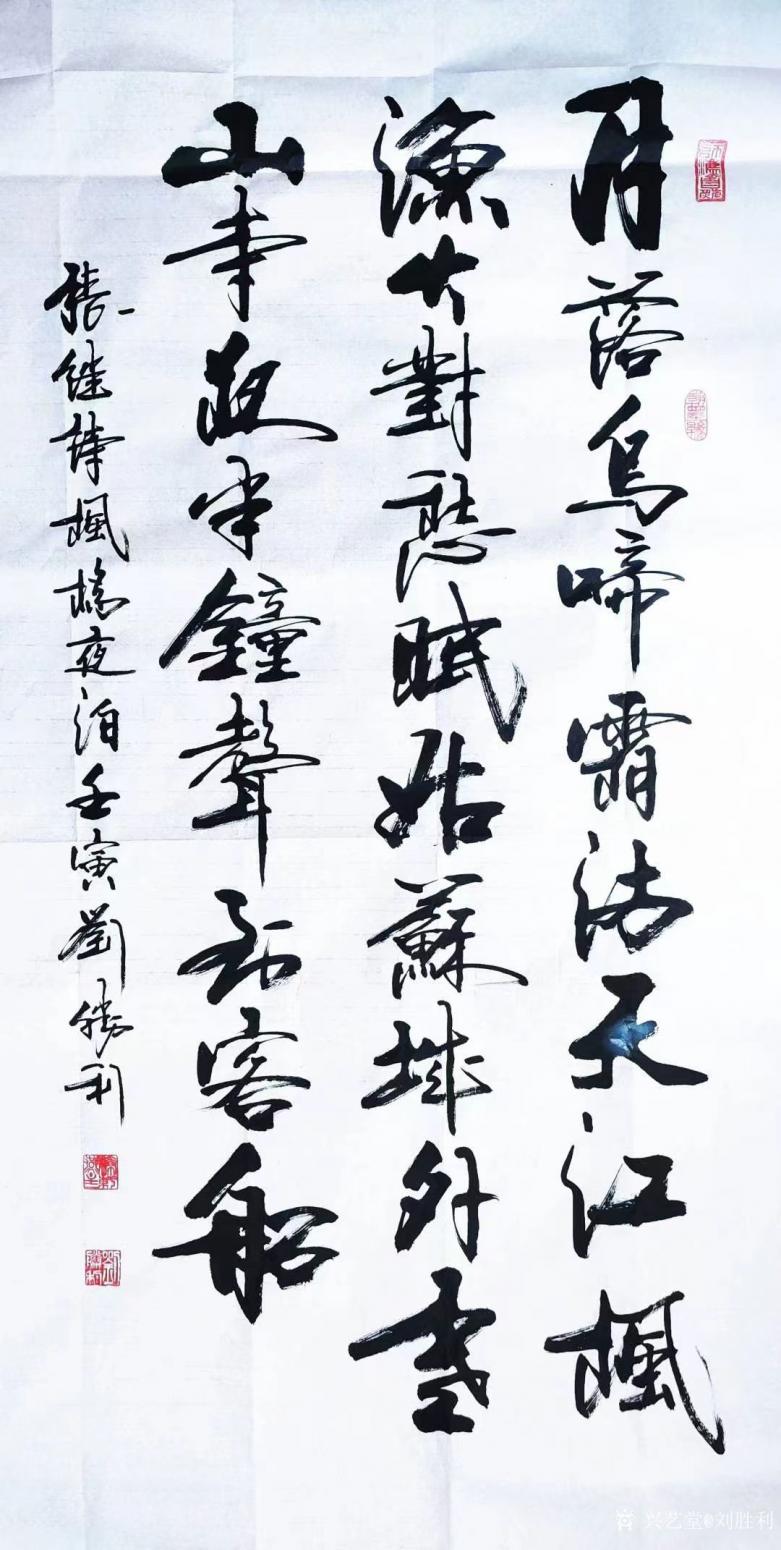 月落烏啼霜滿天江楓
漁火對愁眠姑蘇城外寒
山寺夜半鐘聲到客船
張繼詩楓橋夜泊壬寅劉勝利
兴艺堂@刘胜利